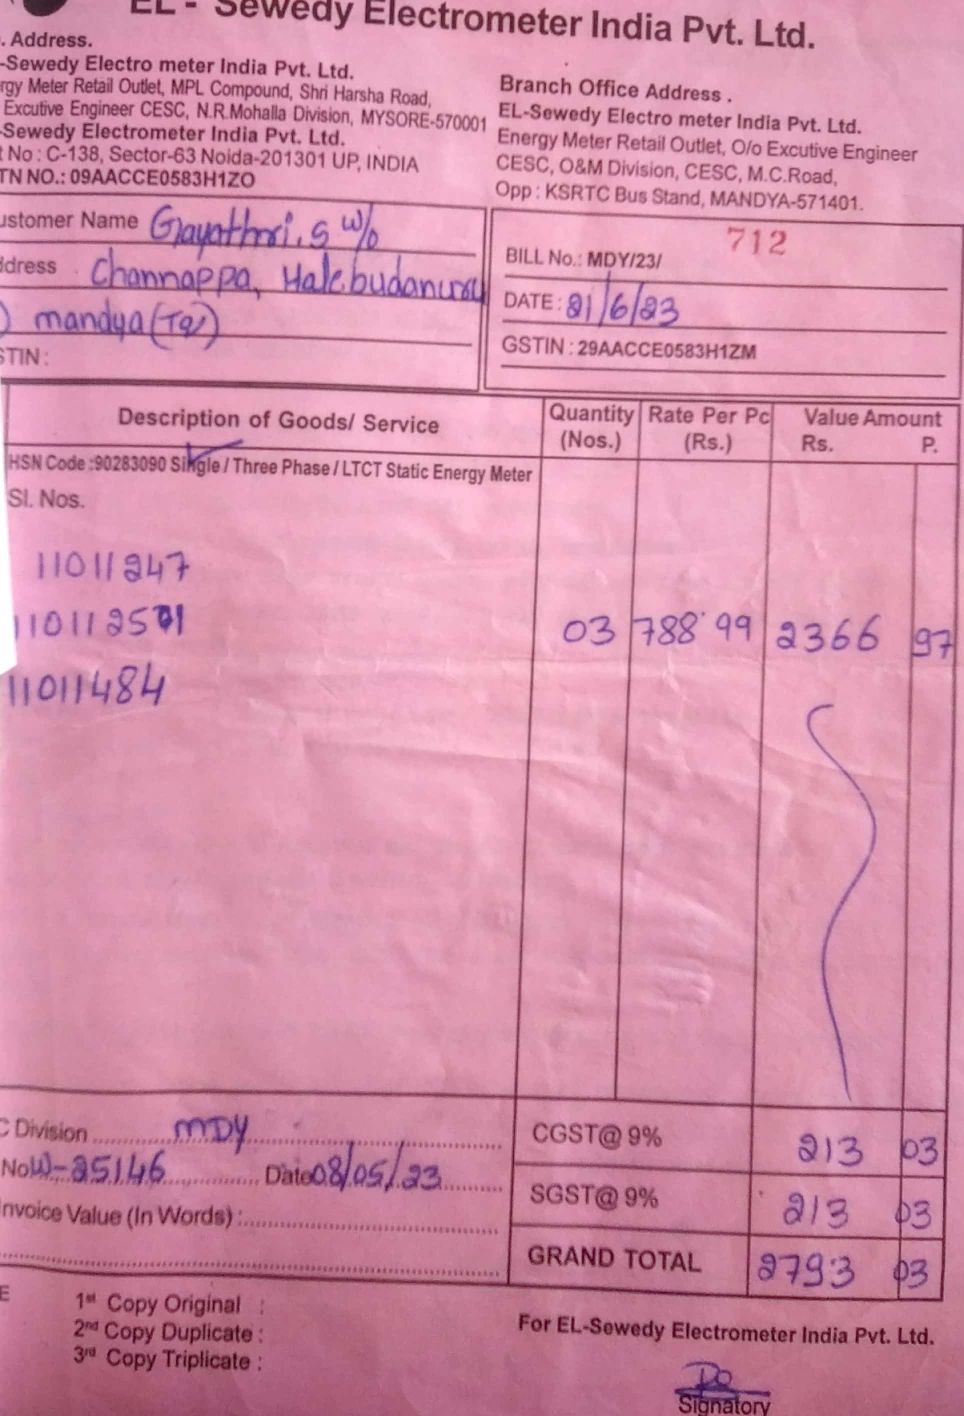 EL - Sewedy Electrometer India Pvt. Ltd.
. Address.
-Sewedy Electro meter India Pvt. Ltd.
rgy Meter Retail Outlet, MPL Compound, Shri Harsha Road,
Excutive Engineer CESC, N.R.Mohalla Division, MYSORE-570001
-Sewedy Electrometer India Pvt. Ltd.
t No : C-138, Sector-63 Noida-201301 UP, INDIA
TN NO.: 09AACCE0583H1ZO
Branch Office Address .
EL-Sewedy Electro meter India Pvt. Ltd.
Energy Meter Retail Outlet, O/o Excutive Engineer
CESC, O&M Division, CESC, M.C.Road,
Opp : KSRTC Bus Stand, MANDYA-571401.
ustomer Name Gayathri.S W/o
ddress . Channappa, Halebudanuru
) mandya (Tq/)
STIN :
BILL No.: MDY/23/ 712
DATE : 21/6/23
GSTIN : 29AACCE0583H1ZM
Description of Goods/ Service Quantity (Nos.) Rate Per Pc (Rs.) Value Amount Rs. P.
HSN Code :90283090 Single / Three Phase / LTCT Static Energy Meter
Sl. Nos.
11011247
1101125
03 788.99 2366 97
11011484
C Division MDY
CGST@ 9% 213 03
No W-25146 Date 08/05/23
SGST@ 9% 213 03
nvoice Value (In Words) :
GRAND TOTAL 2793 03
E
1st Copy Original :
2nd Copy Duplicate :
3rd Copy Triplicate :
For EL-Sewedy Electrometer India Pvt. Ltd.
Signatory